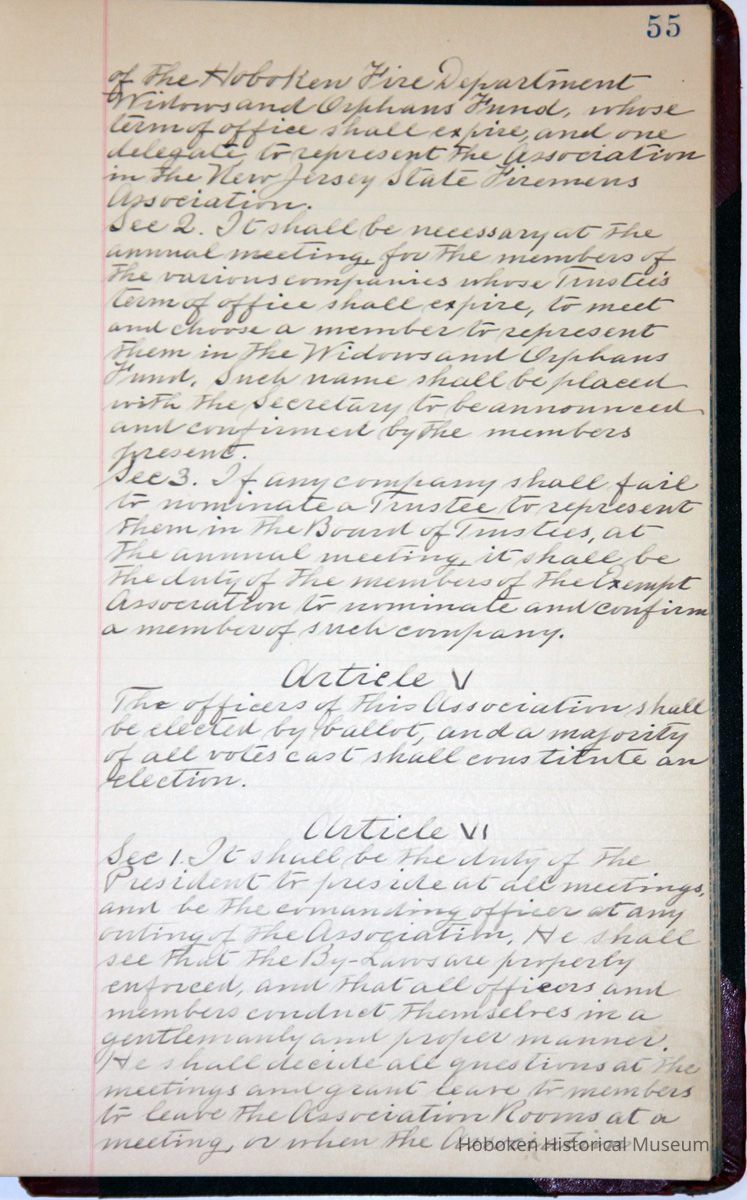 55
of the Hoboken Fire Department
Widows and Orphans Fund, whose
term of office shall expire, and one
delegate, to represent the Association
in the New Jersey State Firemens
Association.
Sec 2. It shall be necessary at the
annual meeting, for the members of
the various companies whose Trustees
term of office shall expire, to meet
and choose a member to represent
them in the Widows and Orphans
Fund. Such name shall be placed
with the Secretary to be announced
and confirmed by the members
present.
Sec 3. If any company shall fail
to nominate a Trustee to represent
them in the Board of Trustees, at
the annual meeting, it shall be
the duty of the members of the Exempt
Association to nominate and confirm
a member of such company.
Article V
The officers of this Association shall
be elected by ballot, and a majority
of all votes cast shall constitute an
election.
Article VI
Sec 1. It shall be the duty of the
President to preside at all meetings,
and be the comanding officer at any
outing of the Association. He shall
see that the By-Laws are properly
enforced, and that all officers and
members conduct themselves in a
gentlemanly and proper manner.
He shall decide all questions at the
meetings and grant leave to members
to leave the Association Rooms at a
meeting, or when the
Hoboken Historical Museum